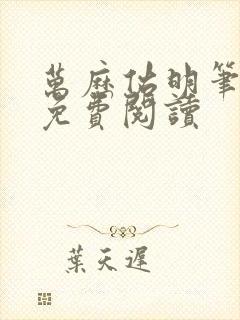 萬麻估明筆
免費閱讀
葉天遲